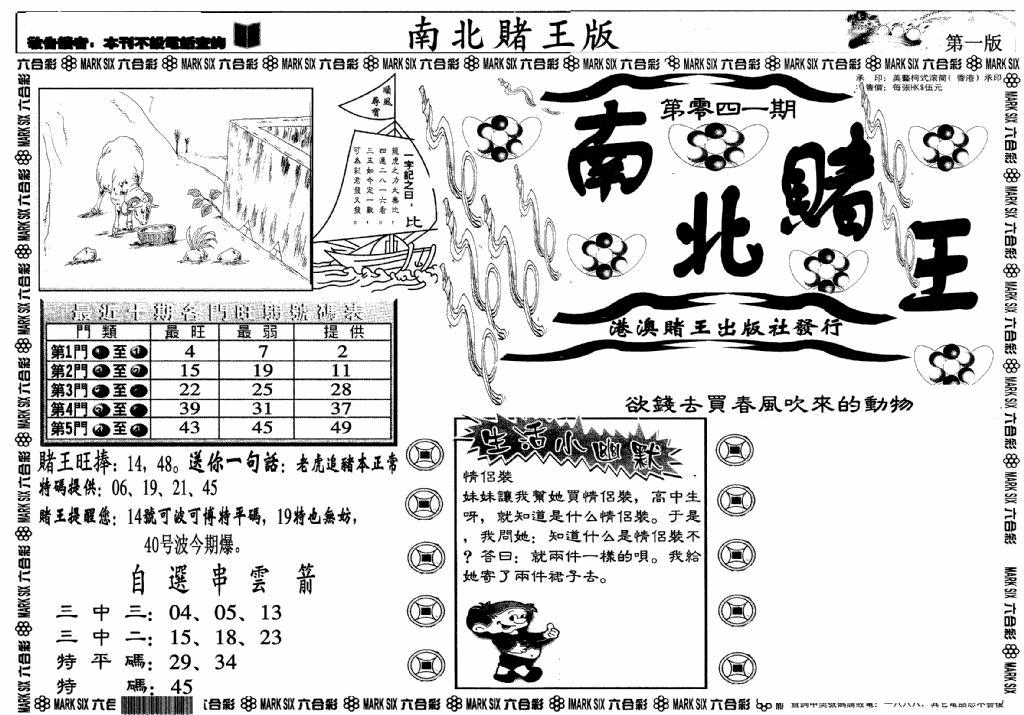 敬告讀者：本刊不設電話查詢
南北賭王版
第一版
六合彩 MARK SIX 六合彩 MARK SIX 六合彩 MARK SIX 六合彩 MARK SIX 六合彩 MARK SIX 六合彩 MARK SIX 六合彩 MARK SIX 六合彩 MARK SIX 六合彩 MARK SIX 六合彩 MARK SIX
承 印：美藝柯式滾筒（香港）承印
售價：每張HK$伍元
順風
尋寶
一字記之曰：比
龍虎之力大無比，
四通二八一六看，
三五如今定一數，
可為彩老發又發。
第零四一期
南北賭王
港澳賭王出版社發行
欲錢去買春風吹來的動物
最近十期各門旺弱號碼表
門類 最旺 最弱 提供
第1門 至 4 7 2
第2門 至 15 19 11
第3門 至 22 25 28
第4門 至 39 31 37
第5門 至 43 45 49
賭王旺捧：14，48。送你一句話：老虎追豬本正常
特碼提供：06、19、21、45
賭王提醒您：14號可波可博特平碼，19特也無妨，
40号波今期爆。
自選串雲箭
三中三：04、05、13
三中二：15、18、23
特平碼：29、34
特 碼：45
生活小幽默
情侶裝
妹妹讓我幫她買情侶裝，高中生
呀，就知道是什么情侶裝。于是
，我問她：知道什么是情侶裝不
？答曰：就兩件一樣的唄。我給
她寄了兩件裙子去。